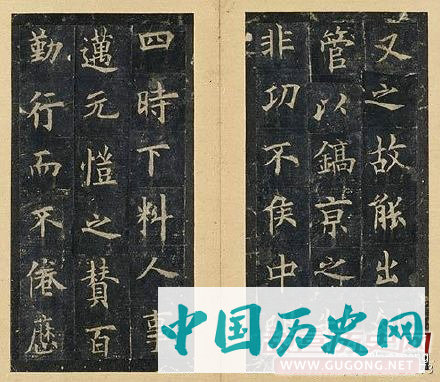 又之故能出
管以鎬京之
非功不侯中
四時下料人事
邁元愷之贊百
勤行而不倦歷
中国历史网
WWW.GUGONG.NET